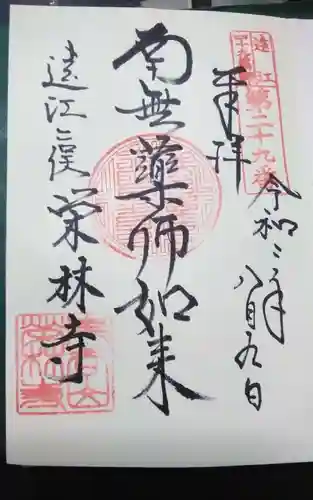 遠江
第二十九番
奉拝
令和二年
八月九日
南無薬師如来
遠江二俣
栄林寺